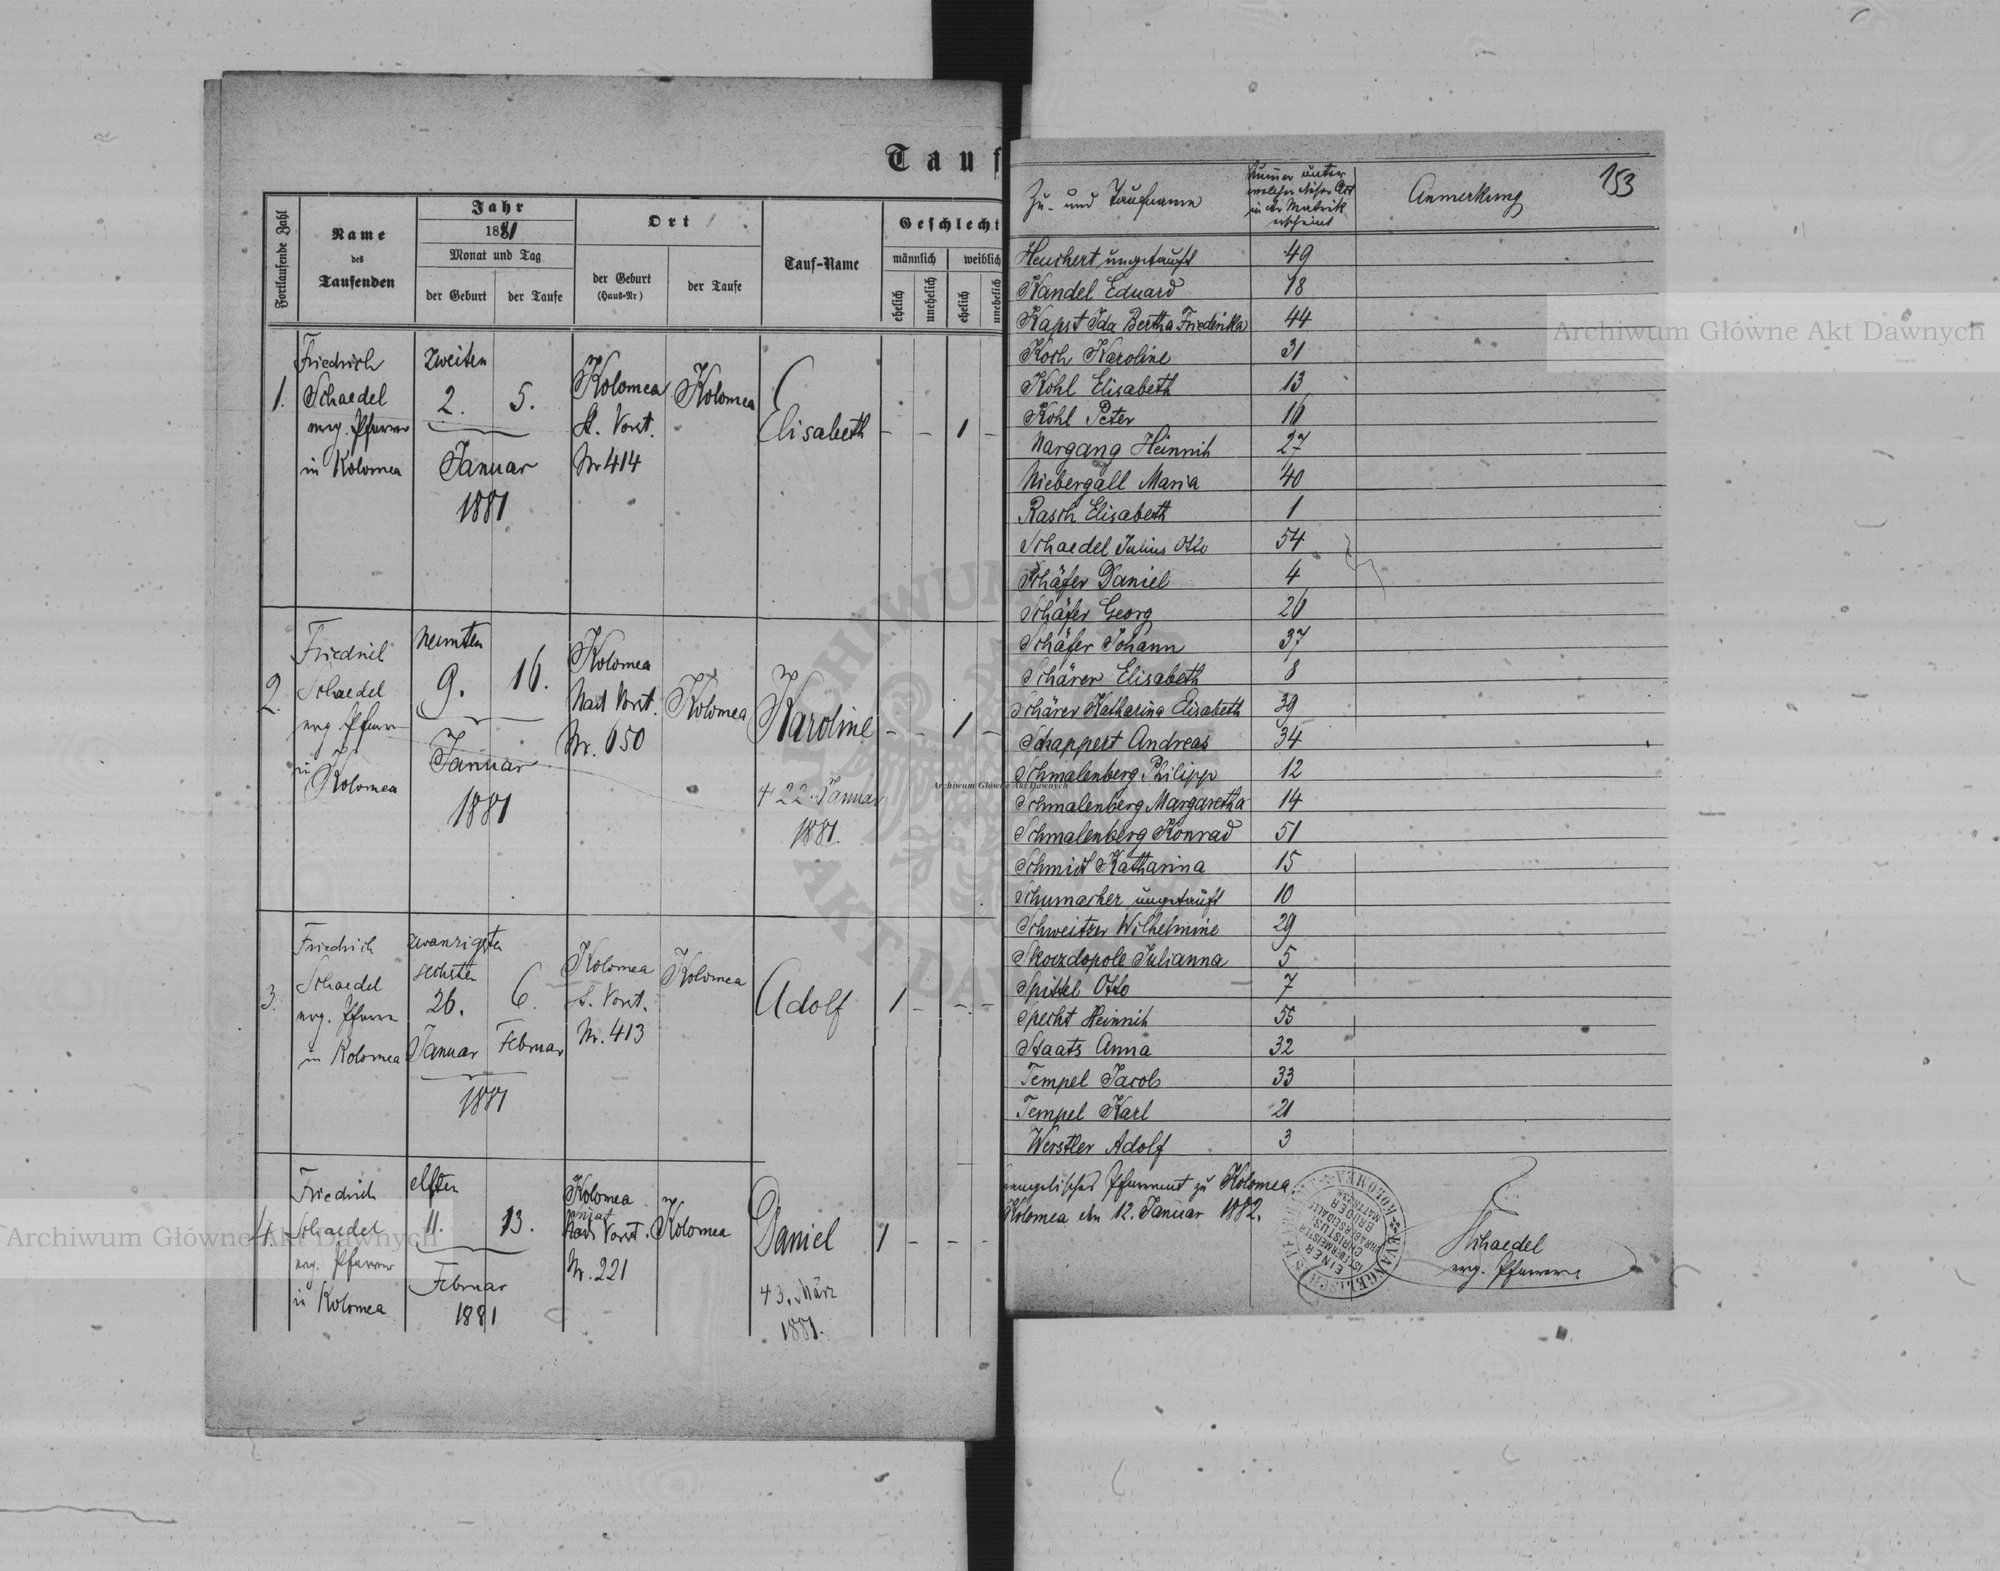 Tauf
Fortlaufende Zahl
Name
des
Taufenden
Jahr
1881
Monat und Tag
der Geburt
der Taufe
Ort
der Geburt
(Haus-Nr)
der Taufe
Tauf-Name
Geschlecht
männlich
weiblich
ehelich
unehelich
ehelich
unehelich
1.
Friedrich
Schaedel
evg. Pfarrer
in Kolomea
zweiten
2.
5.
Januar
1881
Kolomea
S. Vorst.
Nr 414
Kolomea
Elisabeth
– – 1 –
2.
Friedrich
Schaedel
evg. Pfarrer
in
Kolomea
neunten
9.
16.
Januar
1881
Kolomea
Vorst.
Nr. 650
Kolomea
Karoline
† 22. Januar
1881.
– – 1 –
3.
Friedrich
Schaedel
evg. Pfarrer
in Kolomea
zwanzigsten
sechsten
26.
6.
Januar
Februar
1881
Kolomea
S. Vorst.
Nr. 413
Kolomea
Adolf
1 – – –
4.
Friedrich
Schaedel
evg. Pfarrer
in Kolomea
elften
11.
13.
Februar
1881
Kolomea
Vorst.
Nr. 221
Kolomea
Daniel
† 3. März
1881.
1 – – –
153
Zu- und Taufname
Nummer unter
welcher dieser Act
in der Matrik
erscheint
Anmerkung
Heuchert ungetauft 49
Kandel Eduard 18
Kapst Ida Bertha Friederika 44
Koch Karoline 31
Kohl Elisabeth 13
Kohl Peter 16
Nargang Heinrich 27
Niebergall Maria 40
Rasch Elisabeth 1
Schaedel Julius Otto 54
Schäfer Daniel 4
Schäfer Georg 26
Schäfer Johann 37
Schärer Elisabeth 8
Schärer Katharina Elisabeth 39
Schappert Andreas 34
Schmalenberg Philipp 12
Schmalenberg Margaretha 14
Schmalenberg Konrad 51
Schmidt Katharina 15
Schumacher ungetauft 10
Schweitzer Wilhelmine 29
Skoczdopole Julianna 5
Spittel Otto 7
Specht Heinrich 55
Staats Anna 32
Tempel Jacob 33
Tempel Karl 21
Werstler Adolf 3
Evangelisches Pfarramt zu Kolomea
Kolomea den 12. Januar 1882.
Schaedel
evg. Pfarrer
EINER
IST EUER MEISTER
CHRISTUS
IHR ABER SEID ALLE
BRÜDER
Archiwum Główne Akt Dawnych
Archiwum Główne Akt Dawnych
Archiwum Główne Akt Dawnych